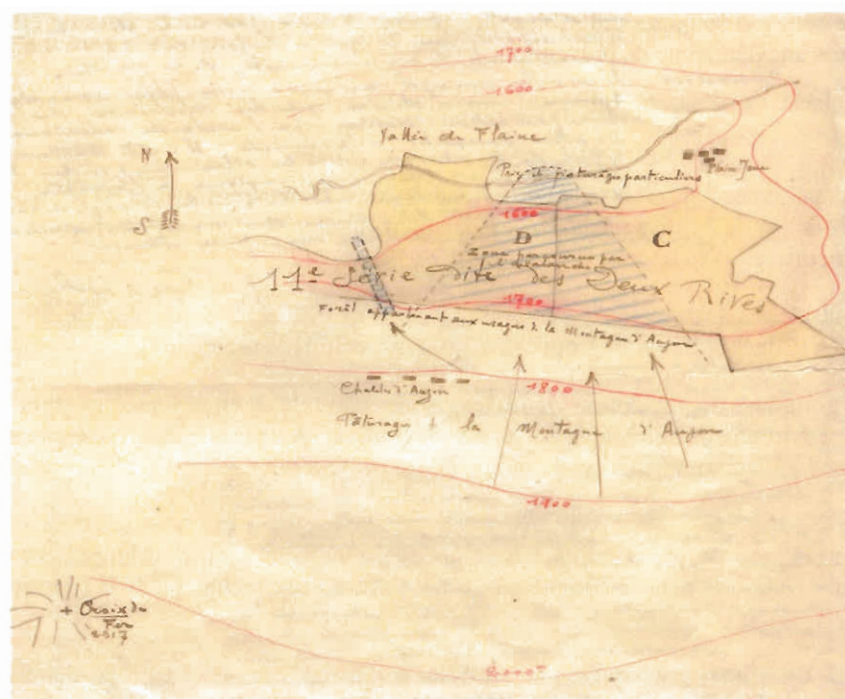 1700
1600
Vallée de Flaine
N
S
Prés et pâturages particuliers
Plain Joux
1600
D
C
Zone parcourue par
l'avalanche
11e Série Dite des Deux Rives
1700
Forêt appartenant aux usagers de la Montagne d'Aujon
Chalets d'Aujon
1800
Pâturages de la Montagne d'Aujon
1900
+ Croix de
Fer
2317
2000